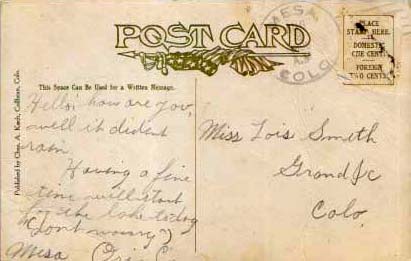 POST CARD
MESA,
COLO.
PLACE
STAMP HERE
DOMESTIC
ONE CENT
FOREIGN
TWO CENTS
This Space Can Be Used for a Written Message.
Published by Chas. A. Kach, Collbran, Colo.
Hello! how are you,
well it dident
rain,
Having a fine
time will start
for the lake today
(dont worry)
Mesa
Miss Lois Smith
Grand Jc
Colo.